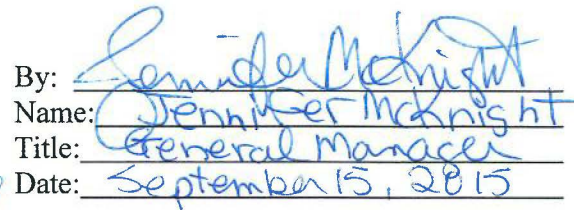 By: Jennifer McKnight
Name: Jennifer McKnight
Title: General Manager
Date: September 15, 2015